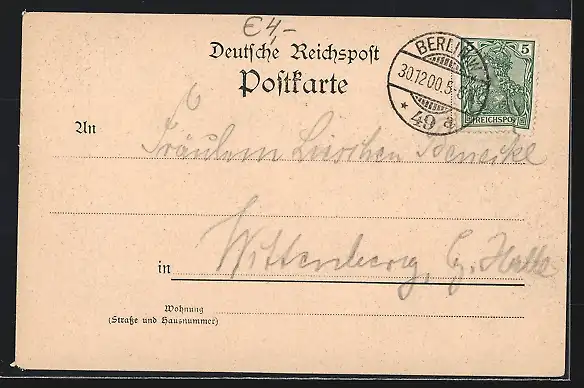 £4,-
Deutsche Reichspost
Postkarte
BERLIN W
30.12.00.5-6
* 49 a
5
REICHSPOST
An
Fräulein Lieschen Beneike
in Wittenberg, Bz. Halle
Wohnung
(Straße und Hausnummer)